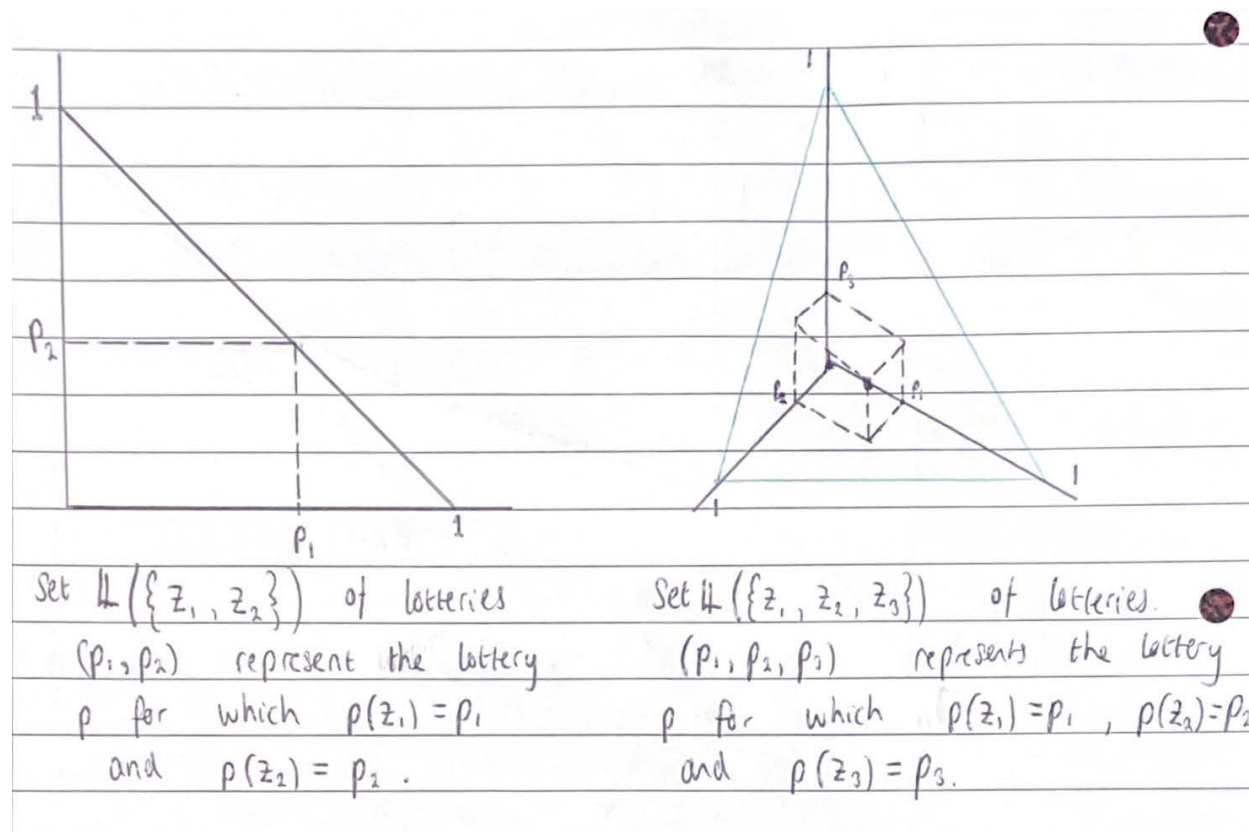 1
P₂
P₁
1
1
P₃
P₂
P₁
1
1
Set 𝕃({z₁, z₂}) of lotteries
(p₁, p₂) represent the lottery
p for which p(z₁) = p₁
and p(z₂) = p₂.
Set 𝕃({z₁, z₂, z₃}) of lotteries.
(p₁, p₂, p₃) represents the lottery
p for which p(z₁) = p₁, p(z₂) = p₂
and p(z₃) = p₃.